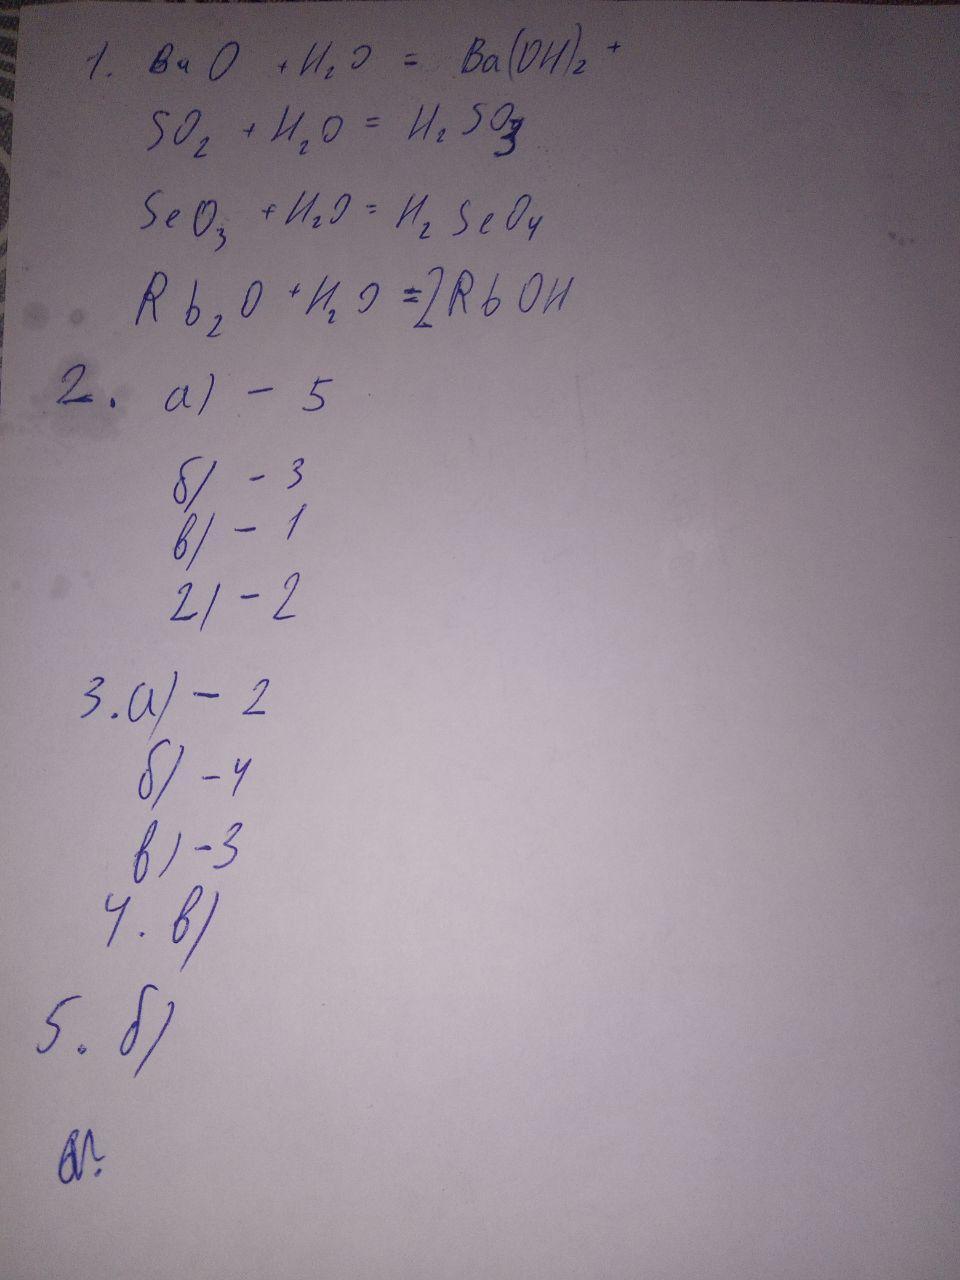 1. BaO + H₂O = Ba(OH)₂ +
SO₂ + H₂O = H₂SO₃
SeO₃ + H₂O = H₂SeO₄
Rb₂O + H₂O = 2RbOH
2. а) - 5
б) - 3
в) - 1
г) - 2
3. а) - 2
б) - 4
в) - 3
4. в)
5. б)